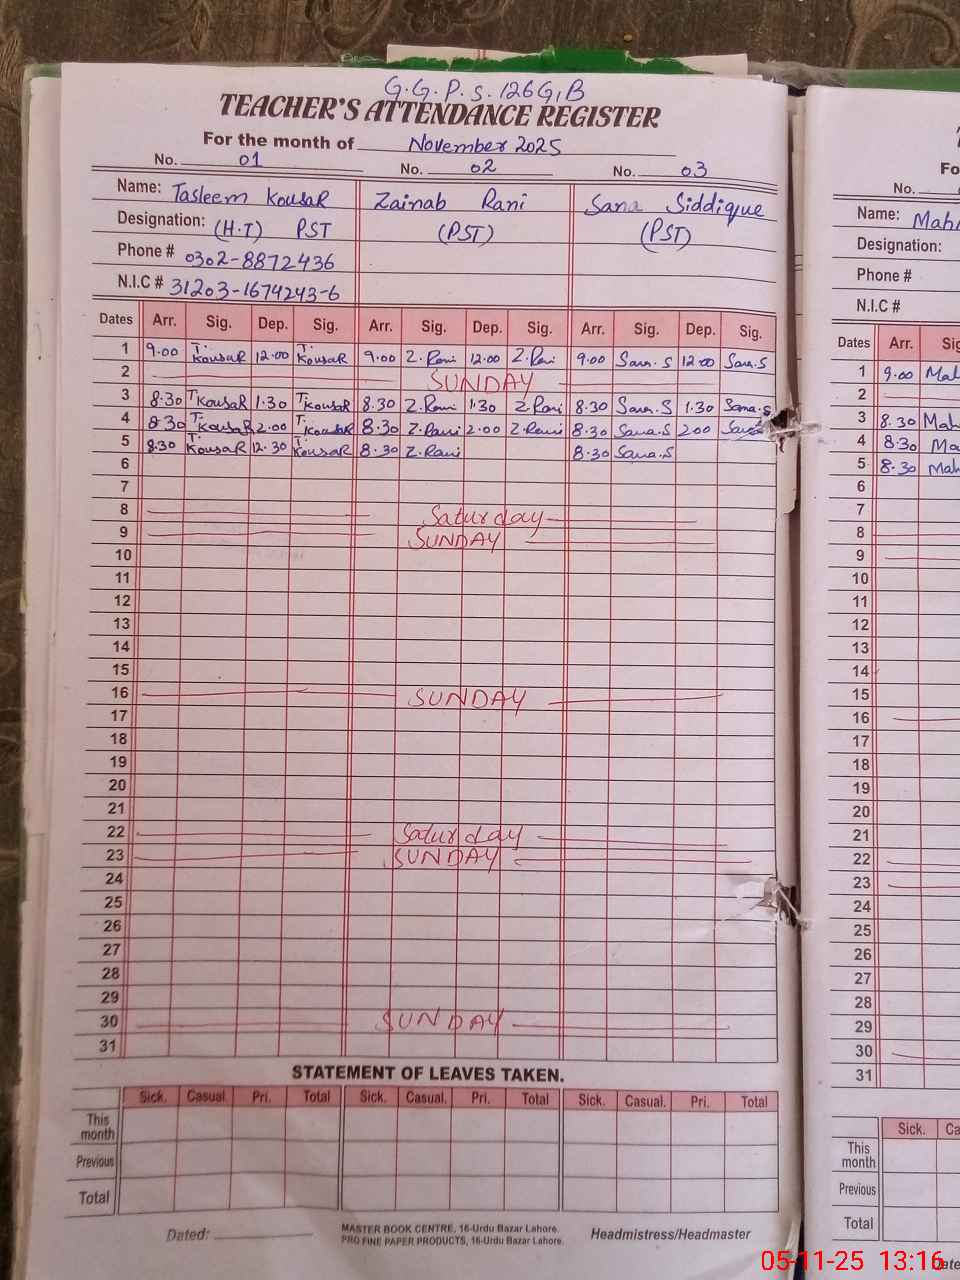 G.G.P.S. 126G,B
TEACHER'S ATTENDANCE REGISTER
For the month of November 2025
No. 01 No. 02 No. 03
Name: Tasleem KousaR Zainab Rani Sana Siddique
Designation: (H.T) PST (PST) (PST)
Phone # 0302-8872436
N.I.C # 31203-1674243-6
Dates Arr. Sig. Dep. Sig. Arr. Sig. Dep. Sig. Arr. Sig. Dep. Sig.
1 9.00 T. KousaR 12.00 T. KousaR 9.00 Z.Rani 12.00 Z.Rani 9.00 Sana.S 12.00 Sana.S
2 SUNDAY
3 8.30 T KousaR 1.30 T. KousaR 8.30 Z.Rani 1.30 Z.Rani 8.30 Sana.S 1.30 Sana.S
4 8.30 T. KousaR 2.00 T. KousaR 8.30 Z.Rani 2.00 Z.Rani 8.30 Sana.S 2.00
5 8.30 T. KousaR 12.30 T. KousaR 8.30 Z.Rani 8.30 Sana.S
6
7
8 Saturday
9 SUNDAY
10
11
12
13
14
15
16 SUNDAY
17
18
19
20
21
22 Saturday
23 SUNDAY
24
25
26
27
28
29
30 SUNDAY
31
STATEMENT OF LEAVES TAKEN.
Sick. Casual. Pri. Total Sick. Casual. Pri. Total Sick. Casual. Pri. Total
This month
Previous
Total
Dated:
MASTER BOOK CENTRE, 16-Urdu Bazar Lahore.
PRO FINE PAPER PRODUCTS, 16-Urdu Bazar Lahore.
Headmistress/Headmaster
No.
Name:
Designation:
Phone #
N.I.C #
Dates Arr.
1 9.00
2
3 8.30
4 8.30
5 8.30
6
7
8
9
10
11
12
13
14
15
16
17
18
19
20
21
22
23
24
25
26
27
28
29
30
31
Sick.
This month
Previous
Total
05-11-25 13:16